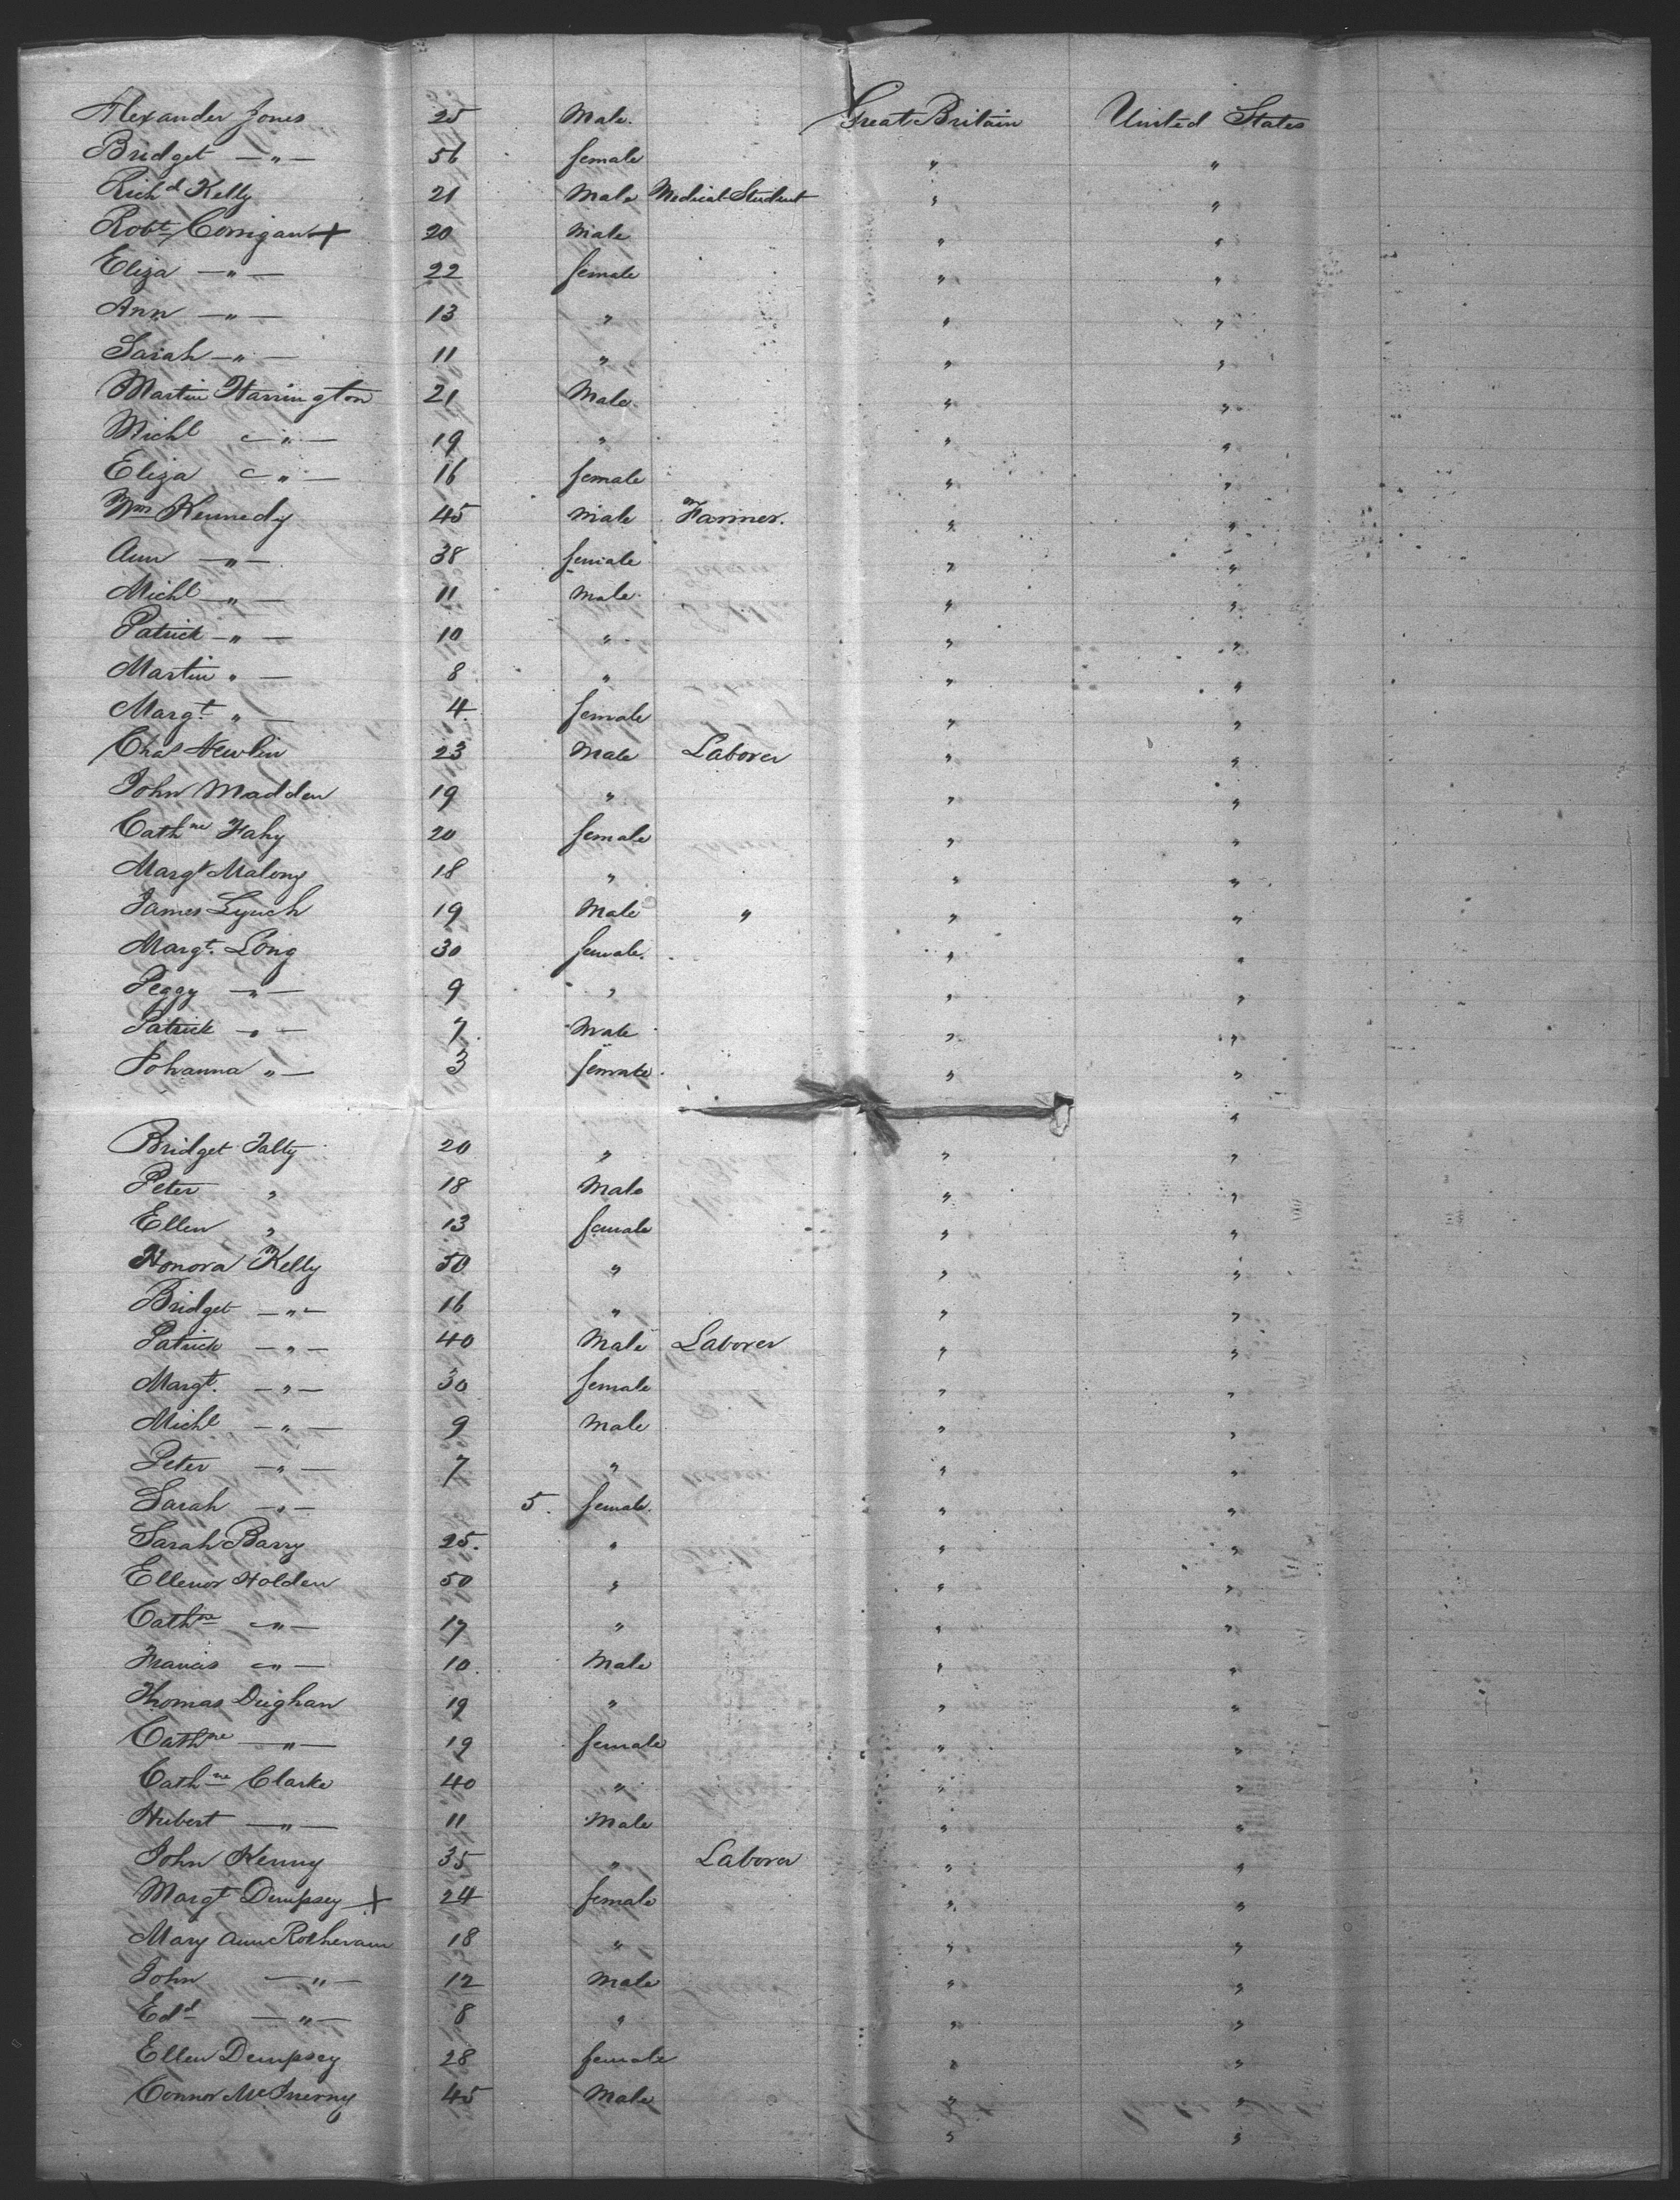 Alexander Jones 25 Male. Great Britain United States
Bridget —"— 56 female " "
Richd Kelly 21 Male Medical Student " "
Robt Corrigan + 20 Male " "
Eliza —"— 22 female " "
Ann —"— 13 " " "
Sarah —"— 11 " " "
Martin Harrington 21 Male " "
Michl —"— 19 " " "
Eliza —"— 16 female " "
Wm Kennedy 45 Male Farmer. " "
Ann —"— 38 female " "
Michl —"— 11 Male " "
Patrick —"— 10 " " "
Martin "— 8 " " "
Margt. "— 4 female " "
Chas Newlin 23 Male Laborer " "
John Madden 19 " " "
Cathne Fahy 20 female " "
Margt Malony 18 " " "
James Lynch 19 Male " " "
Margt. Long 30 female. " "
Peggy —"— 9 " " "
Patrick —"— 7 Male " "
Johanna "— 3 female " "
"
Bridget Talty 20 " " "
Peter " 18 Male " "
Ellen " 13 female " "
Honora Kelly 50 " " "
Bridget —"— 16 " " "
Patrick —"— 40 Male Laborer " "
Margt. —"— 30 female " "
Michl —"— 9 Male " "
Peter —"— 7 " " "
Sarah —"— 5. female. " "
Sarah Barry 25. " " "
Ellenor Holden 50 " " "
Cathne —"— 17 " " "
Francis —"— 10. Male " "
Thomas Dughan 19 " " "
Cathne —"— 19 female " "
Cathne Clarke 40 " " "
Hubert —"— 11 Male " "
John Kenny 35 " Laborer " "
Margt Dempsey + 24 female " "
Mary Ann Rotheram 18 " " "
John —"— 12 Male " "
Edd —"— 8 " " "
Ellen Dempsey 28 female " "
Connor McInerny 45 Male " "
" "